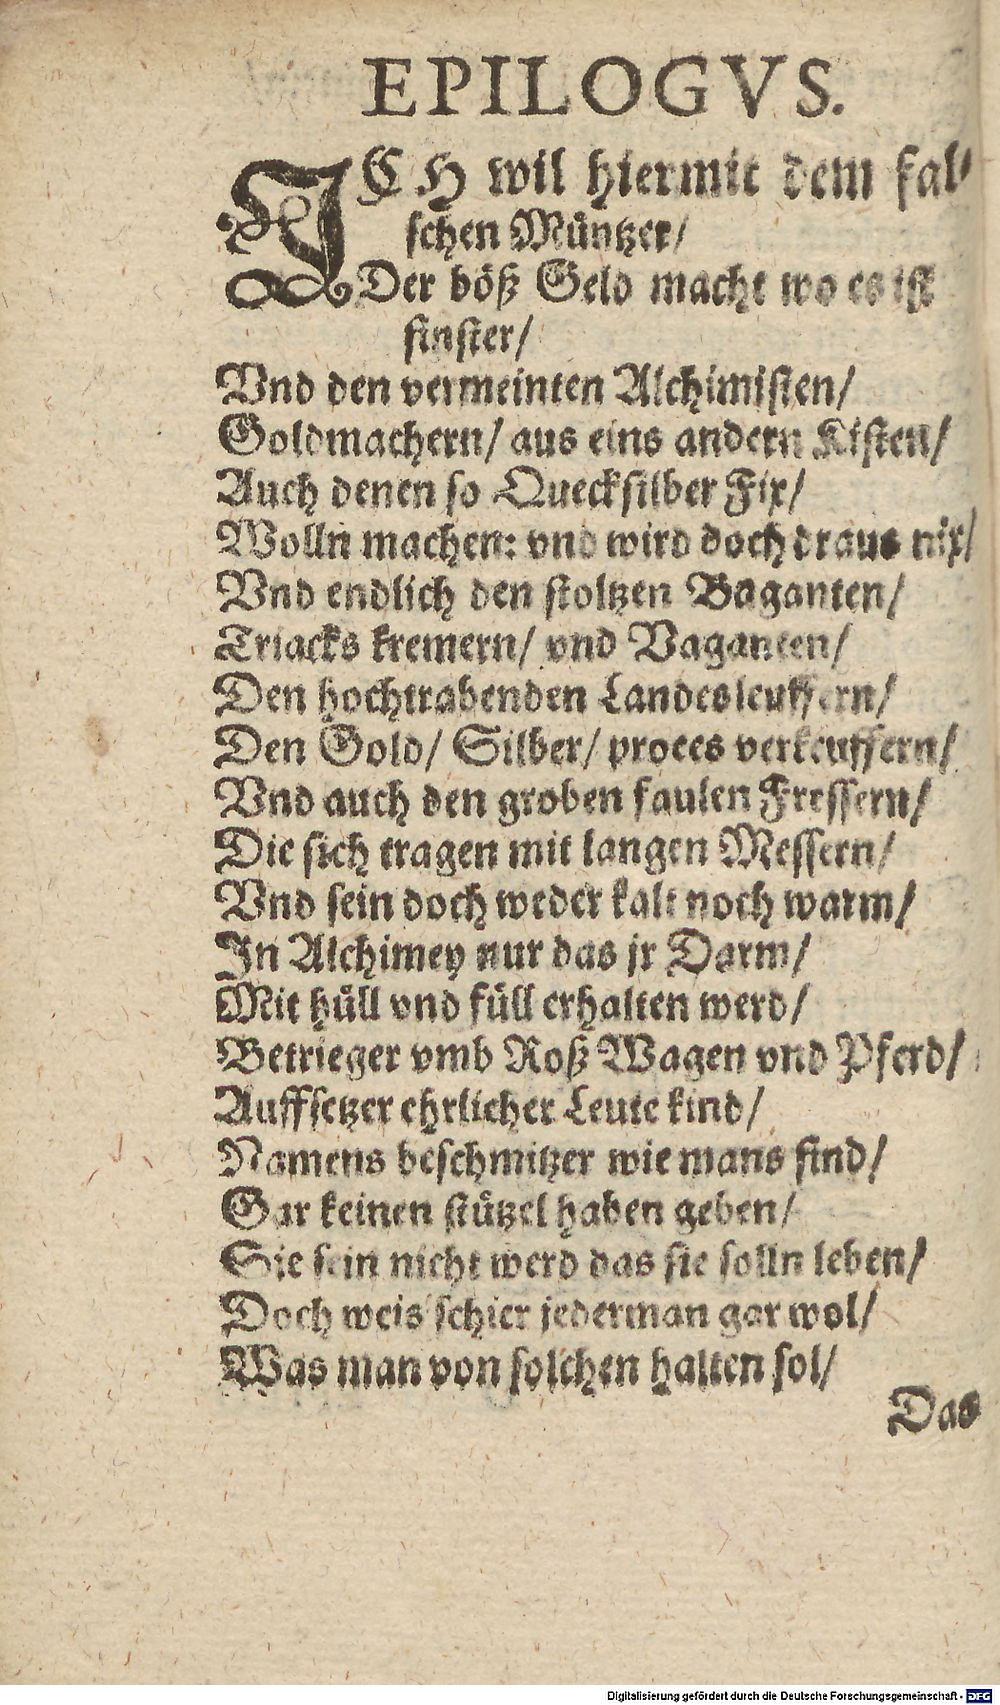 EPILOGVS.
ICH wil hiermit dem fal-
schen Müntzer/
Der böß Geld macht wo es ist
finster/
Vnd den vermeinten Alchimisten/
Goldmachern/ aus eins andern Kisten/
Auch denen so Quecksilber Fix/
Wolln machen: vnd wird doch draus nix/
Vnd endlich den stoltzen Baganten/
Triacks kremern/ vnd Vaganten/
Den hochtrabenden Landesleuffern/
Den Gold/ Silber/ proces verkeuffern/
Vnd auch den groben faulen Fressern/
Die sich tragen mit langen Messern/
Vnd sein doch weder kalt noch warm/
In Alchimey nur das jr Darm/
Mit hüll vnd füll erhalten werd/
Betrieger vmb Roß Wagen vnd Pferd/
Auffsetzer ehrlicher Leute kind/
Namens beschmitzer wie mans find/
Gar keinen stützel haben geben/
Sie sein nicht werd das sie solln leben/
Doch weis schier jederman gar wol/
Was man von solchen halten sol/
Das
Digitalisierung gefördert durch die Deutsche Forschungsgemeinschaft - DFG